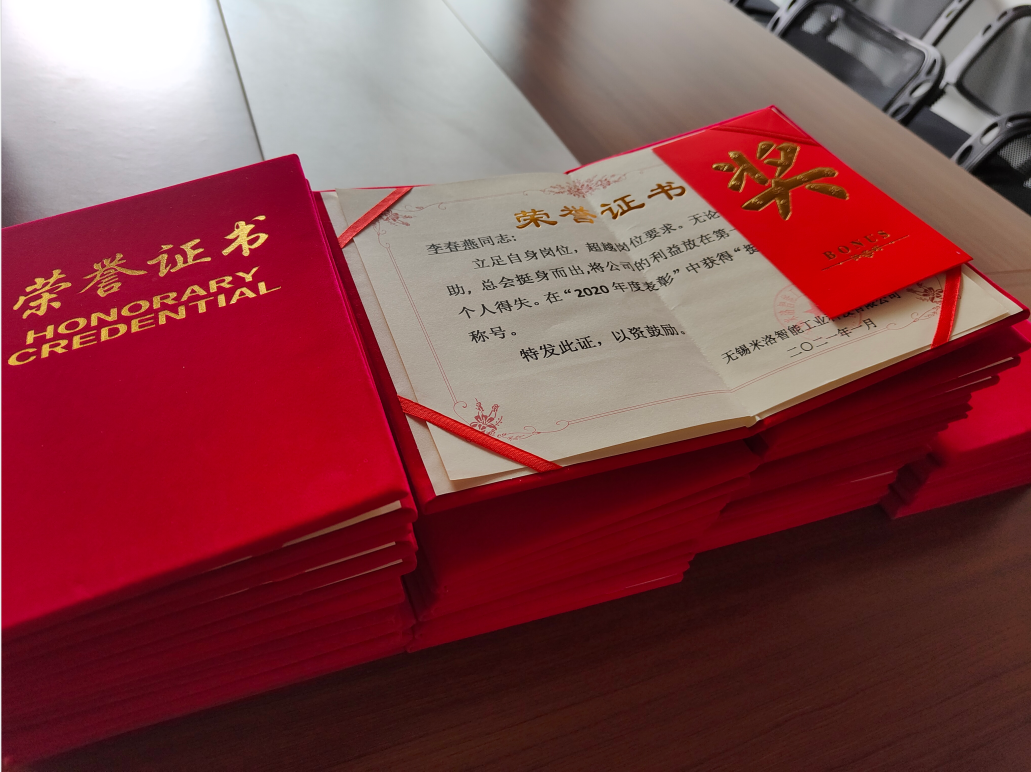 荣誉证书
HONORARY
CREDENTIAL
荣誉证书
李春燕同志：
立足自身岗位，超越岗位要求。无论
助，总会挺身而出，将公司的利益放在第一
个人得失。在“2020年度表彰”中获得“挺
称号。
特发此证，以资鼓励。
无锡米洛智能工业 有限公司
二〇二一年一月
奖
BONUS